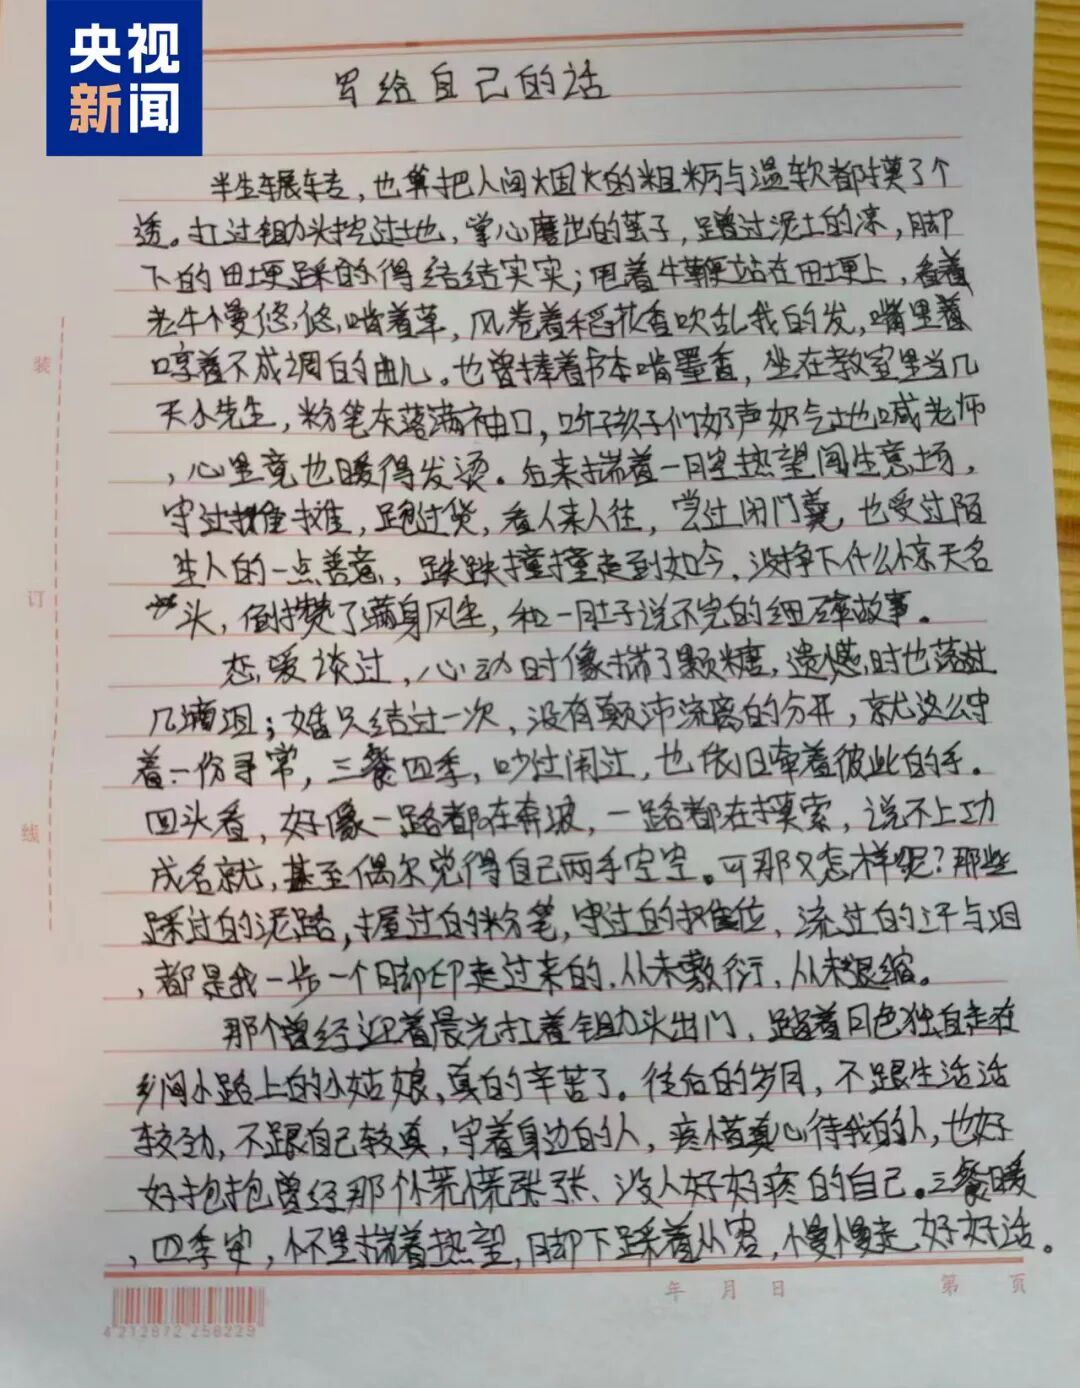 央视
新闻
写给自己的话
半生辗转，也算把人间烟火的粗粝与温软都摸了个
透。扛过锄头挖过地，掌心磨出的茧子，蹭过泥土的凉，脚
下的田埂踩得结结实实；甩着牛鞭站在田埂上，看着
老牛慢悠悠啃着草，风卷着稻花香吹乱我的发，嘴里着
哼着不成调的曲儿。也曾捧着书本啃墨香，坐在教室里当几
天小先生，粉笔灰落满袖口，听孩子们奶声奶气地喊老师
，心里竟也暖得发烫。后来揣着一腔热望闯生意场，
守过摊，跑过货，看人来人往，尝过闭门羹，也受过陌
生人的一点善意，跌跌撞撞走到如今，没挣下什么惊天名
头，倒攒了满身风尘，和一肚子说不完的细碎故事。
恋爱谈过，心动时像揣了颗糖，遗憾时也落过
几滴泪；婚只结过一次，没有颠沛流离的分开，就这么守
着一份寻常，三餐四季，吵过闹过，也依旧牵着彼此的手。
回头看，好像一路都在奔波，一路都在摸索，说不上功
成名就，甚至偶尔觉得自己两手空空。可那又怎样呢？那些
踩过的泥路，握过的粉笔，守过的摊位，流过的汗与泪
，都是我一步一个脚印走过来的，从未敷衍，从未退缩。
那个曾经迎着晨光扛着锄头出门，踏着月色独自走在
乡间小路上的小姑娘，真的辛苦了。往后的岁月，不跟生活活
较劲，不跟自己较真，守着身边的人，疼惜真心待我的人，也好
好抱抱曾经那个慌慌张张、没人好好疼的自己。三餐暖
，四季安，怀里揣着热望，脚下踩着从容，慢慢走，好好活。
装
订
线
年 月 日
第 页
4 212872 258229